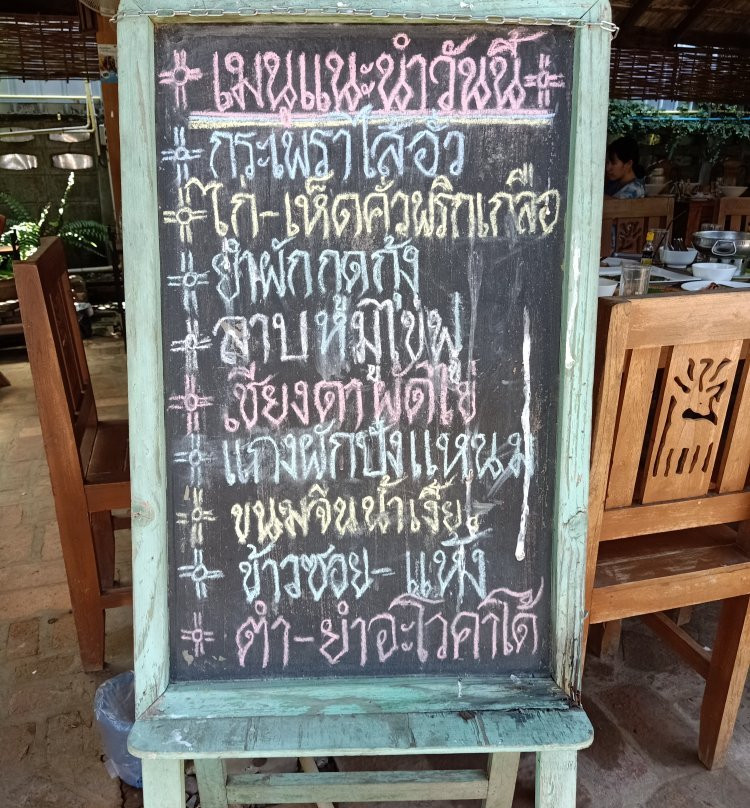 เมนูแนะนำวันนี้
กระเพราไส้อั่ว
ไก่-เห็ดคั่วพริกเกลือ
ยำผักกูดกุ้ง
ลาบหมูไข่ฟู
เชียงดาผัดไข่
แกงผักปั๋งแหนม
ขนมจีนน้ำเงี้ยว
ข้าวซอย-แห้ง
ตำ-ยำอะโวคาโด้